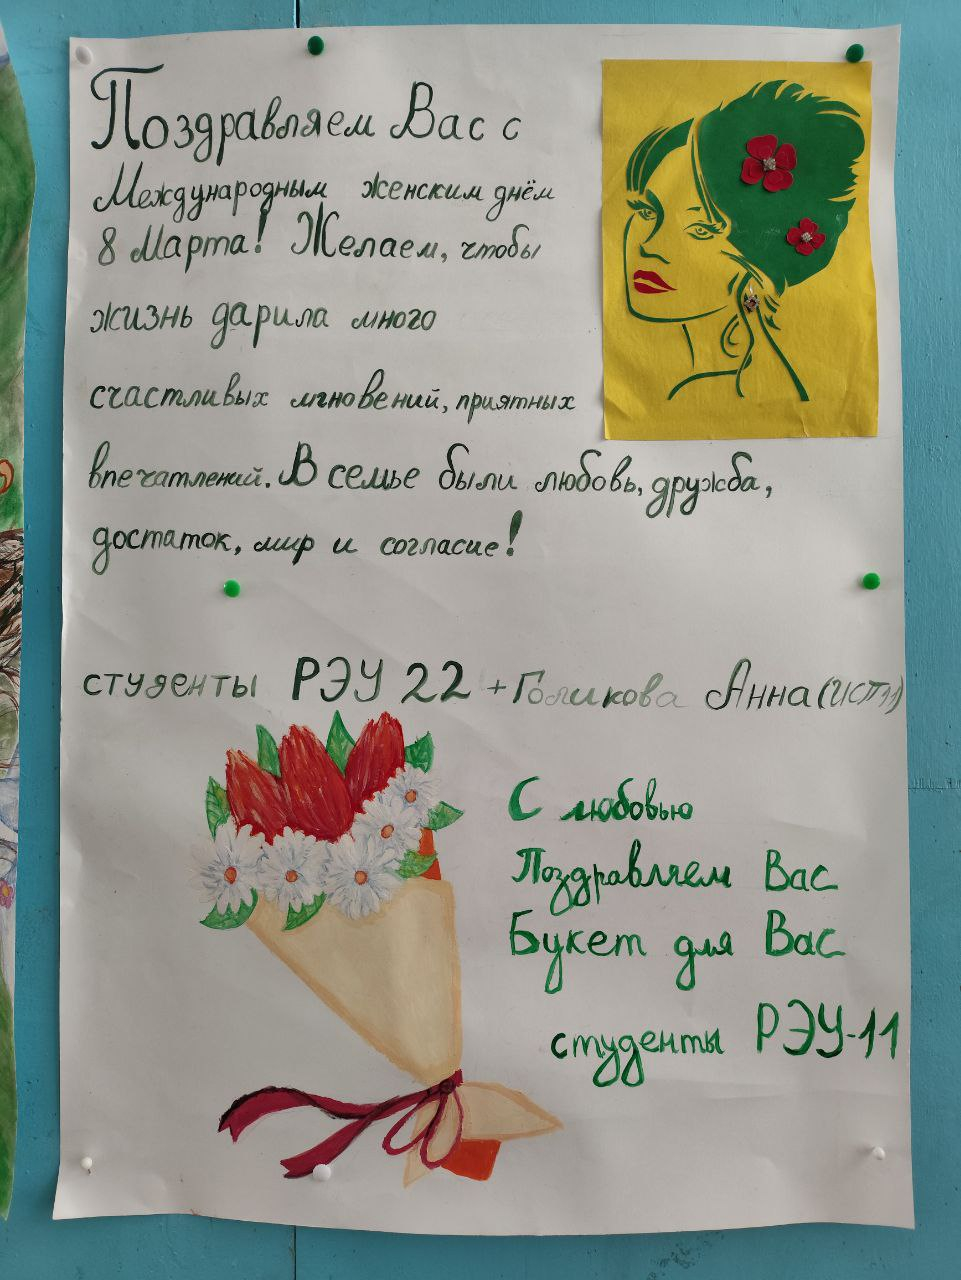 Поздравляем Вас с
Международным женским днём
8 Марта! Желаем, чтобы
жизнь дарила много
счастливых мгновений, приятных
впечатлений. В семье были любовь, дружба,
достаток, мир и согласие!
студенты РЭУ 22 + Голикова Анна (ИСП11)
С любовью
Поздравляем Вас
Букет для Вас
студенты РЭУ-11